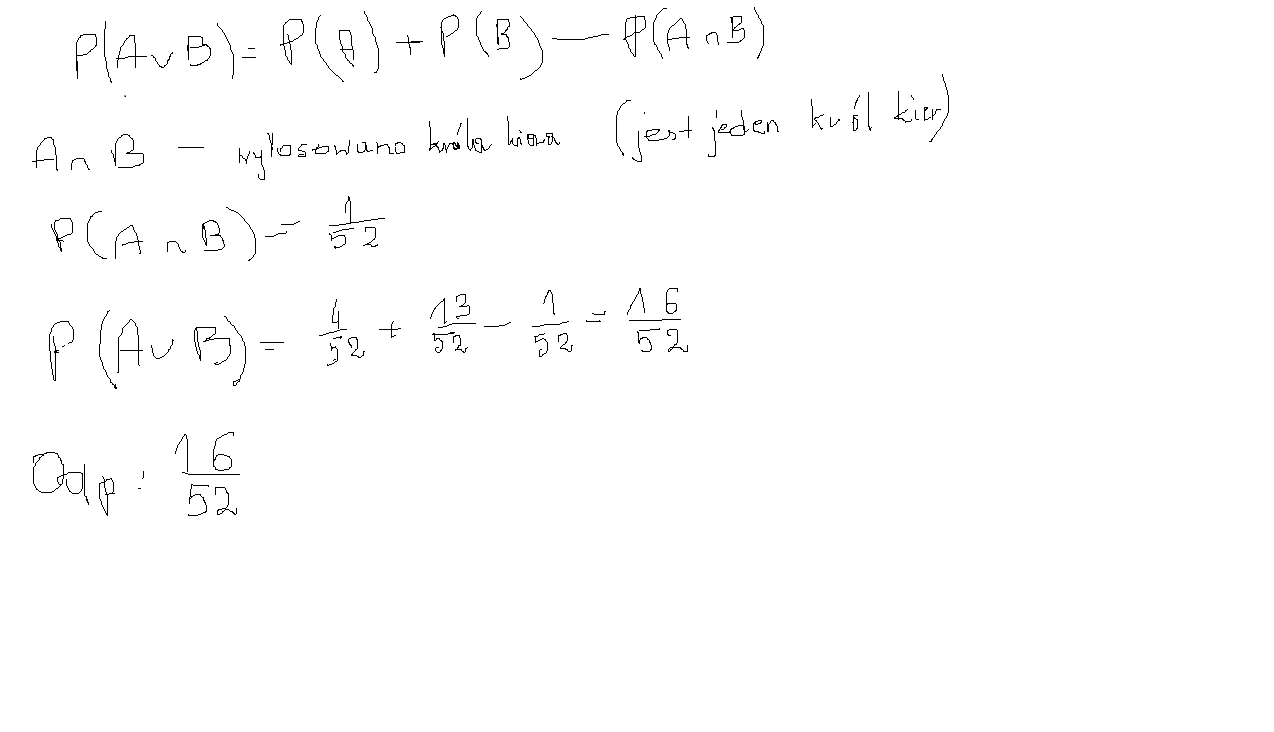 P(A∪B) = P(A) + P(B) — P(A∩B)
A∩B — wylosowano króla kiera (jest jeden król kier)
P(A∩B) = 1/52
P(A∪B) = 4/52 + 13/52 - 1/52 = 16/52
Odp: 16/52